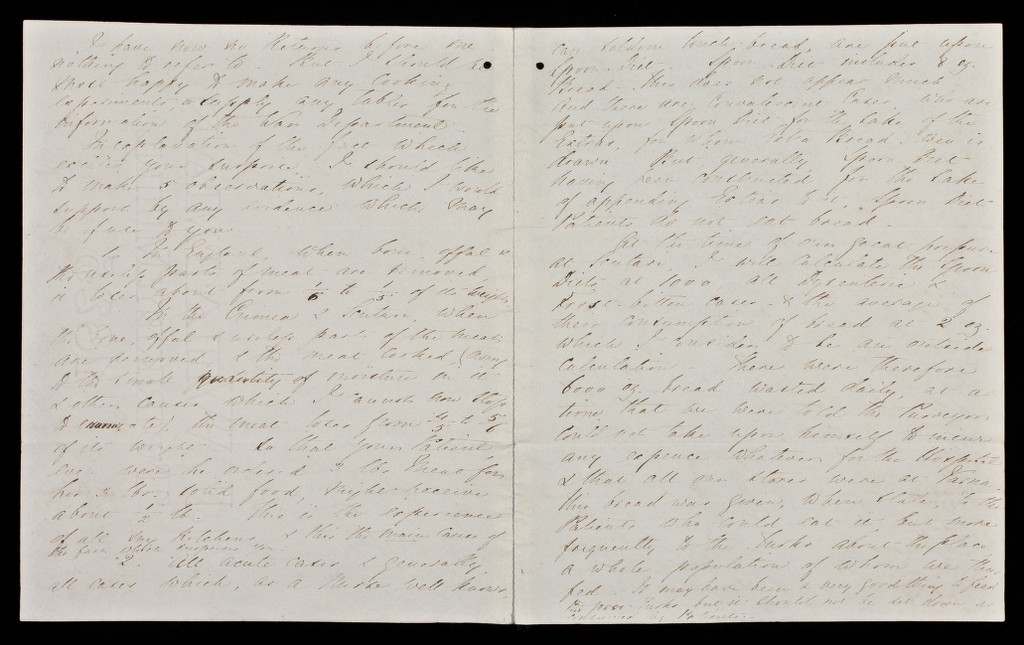 I have now no Returns before me
nothing to refer to. But I should be
most happy to make any Cooking
experiments, or supply any tables for the
information of the War Department.
In explanation of the fact which
excites your surprise, I should like
to make 5 observations, which I could
support by any evidence which may
be of use to you.
1. In England, when bone, offal &
the useless parts of meat are removed,
it loses about from 1/6 to 1/5 of its weight
In the Crimea & Scutari, when
the bone, offal & useless parts of the meat
are removed & the meat cooked, (owing
to the small quantity of moisture in it
& other causes which I cannot now stop
to enumerate) the meat loses from 4/5 to 5/6
of its weight. So that your Patient
even were he ordered 3 lbs Meat for
his solid food, might receive
about 1/2 lb. This is the experience
of all my Kitchens, & this the main cause of
the fact which surprises you.
2. All acute cases & generally
all cases which, as a Nurse well knows,
can seldom touch bread, are put upon
Spoon Diet. Spoon Diet includes 8 oz.
Bread. This does not appear much
And there are Convalescent Cases, who are
put upon Spoon Diet for the sake of the
Extras, for whom Bread is
drawn. But generally Spoon Diet
having been constructed for the sake
of appending Extras to it, Spoon Diet
Patients do not eat bread.
At the time of our great pressure
at Scutari, I will calculate the Spoon
Diets at 1000, all Dysenteric &
Frost-bitten cases & the average of
their consumption of bread at 2 oz.
which I consider to be an outside
calculation. There were therefore
6000 oz. bread wasted daily, at a
time that we were told the Purveyor
could not take upon himself to incur
any expence whatever for the Hospital
& that all our stores were at Varna.
This bread was given, when stale, to the
Patients who could eat it, but more
frequently to the Turks about the place
a whole population of whom we thus
fed. It may have been a very good thing to feed
the poor Turks, but it should not be set down as
consumed by